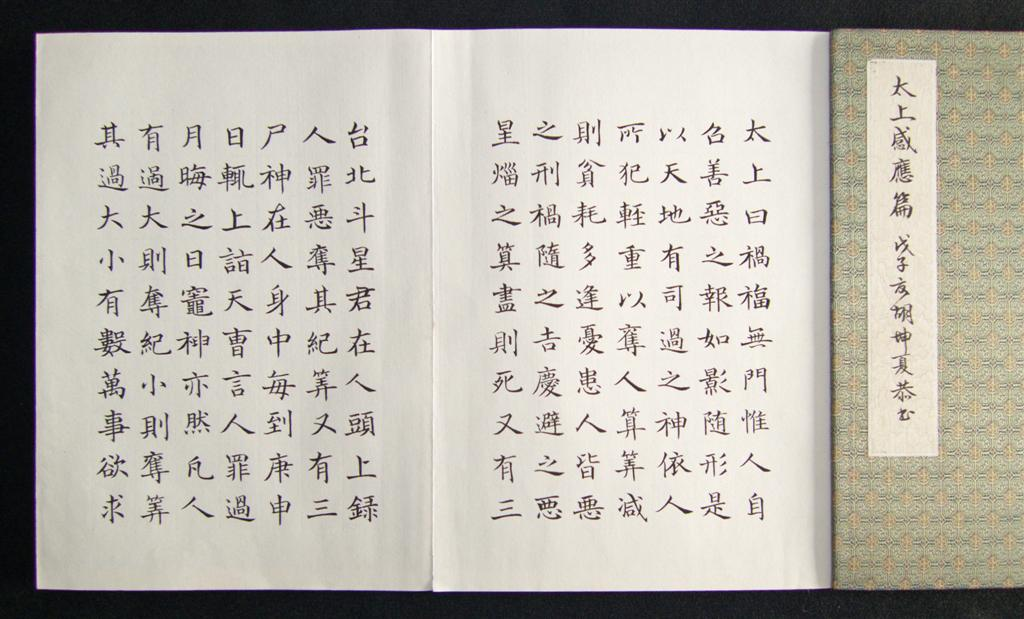 太上感應篇 戊子亥胡坤夏恭书
太上曰禍福無門惟人自
召善惡之報如影随形是
以天地有司過之神依人
所犯輕重以奪人算筭减
則貧耗多逢憂患人皆悪
之刑禍隨之吉慶避之悪
星災之算盡則死又有三
台北斗星君在人頭上録
人罪悪奪其紀筭又有三
尸神在人身中每到庚申
日輒上詣天曹言人罪過
月晦之日竈神亦然凡人
有過大則奪紀小則奪筭
其過大小有數萬事欲求